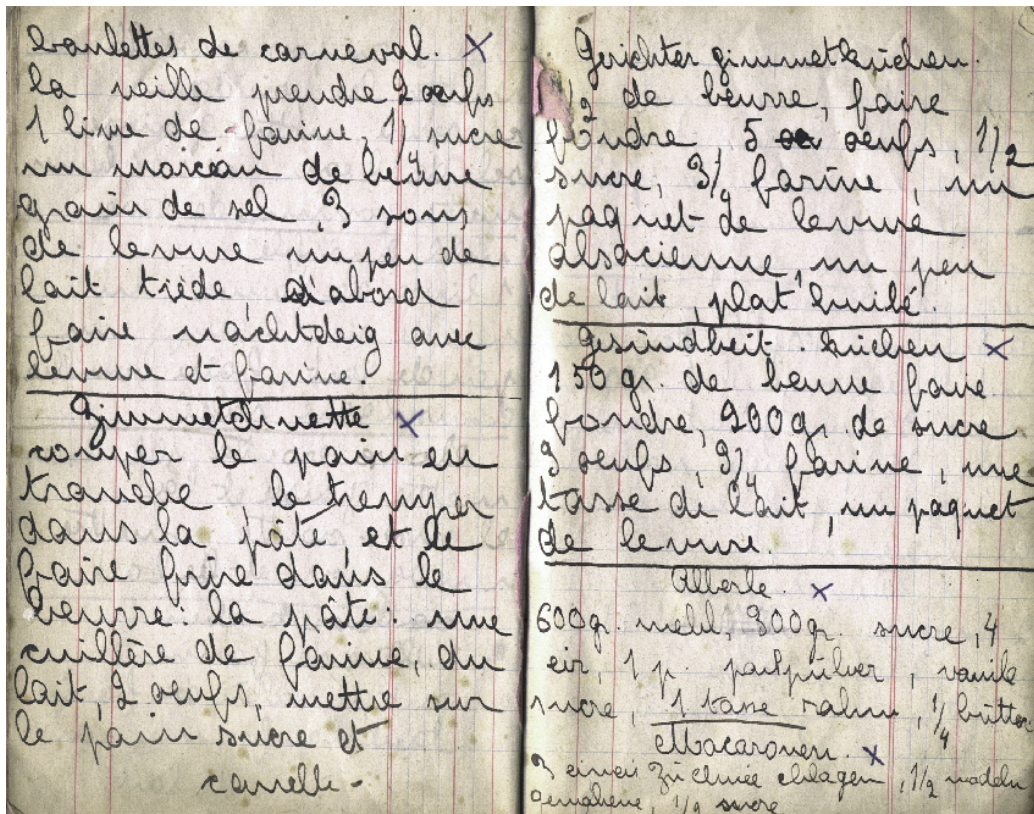 Boulettes de carneval. X
la veille prendre 2 oeufs
1 livre de farine, 1/4 sucre
un morceau de beurre
grain de sel 3 sous
de levure un peu de
lait tiede d'abord
faire nachtdeig avec
levure et farine.
Zimmetschnette X
couper le pain en
tranche, le tremper
dans la pâte, et le
faire frire dans le
beurre: la pâte: une
cuillère de farine, du
lait, 2 oeufs, mettre sur
le pain sucre et
cannelle -
Gerichter Zimmetkuchen.
1/2 de beurre, faire
fondre, 5 oeufs, 1/2
sucre, 3/4 farine, un
paquet de levure
alsacienne, un peu
de lait, plat huilé.
Gesündheit. kuchen X
150 gr. de beurre faire
fondre, 200 gr. de sucre
3 oeufs, 3/4 farine, une
tasse de lait, un paquet
de levure.
Alberle. X
600 gr. mehl, 300 gr. sucre, 4
eir, 1 p. packpulver, vanile
sucre, 1 tasse rahm, 1/4 butter
Macaronen. X
3 eiweis zu schnee chlagen, 1/2 madeln
gemahlene, 1/2 sucre